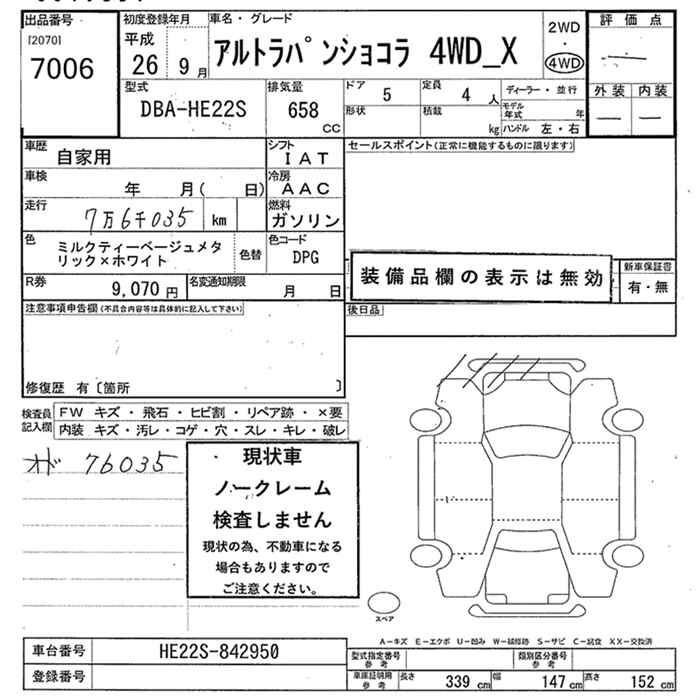 出品番号
[2070]
7006
初度登録年月
平成
26 9 月
車名・グレード
アルトラパンショコラ 4WD_X
2WD
・
4WD
評価点
外装 内装
型式
DBA-HE22S
排気量
658
CC
ドア 5
定員 4 人
形状
積載 kg
ディーラー・並行
モデル年式 年
ハンドル 左・右
車歴
自家用
シフト
IAT
セールスポイント(正常に機能するものに限ります)
車検
年 月( 日)
冷房
AAC
走行
7万6千035 km
燃料
ガソリン
色
ミルクティーベージュメタ
リック×ホワイト
色替
色コード
DPG
装備品欄の表示は無効
新車保証書
有・無
R券
9,070 円
名変通知期限
月 日
注意事項申告欄(不具合内容等は具体的に記入して下さい)
後日品
修復歴 有〔箇所 〕
検査員
記入欄
FW キズ・飛石・ヒビ割・リペア跡・×要
内装 キズ・汚レ・コゲ・穴・スレ・キレ・破レ
76035
現状車
ノークレーム
検査しません
現状の為、不動車になる
場合もありますので
ご注意ください。
スペア
A-キズ E-エクボ U-凹み W-補修跡 S-サビ C-腐食 XX-交換済
車台番号
HE22S-842950
登録番号
型式指定番号
参考
類別区分番号
参考
車庫証明用
参考
長さ 339 cm
幅 147 cm
高さ 152 cm